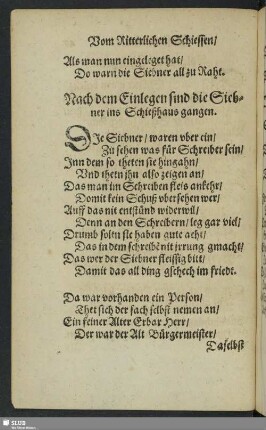 Vom Ritterlichen Schiessen/
Als man nun eingeleget hat/
Do warn die Siebner all zu Raht.
Nach dem Einlegen sind die Sieb-
ner ins Schießhaus gangen.
DJe Siebner/ waren vber ein/
Zu sehen was für Schreiber sein/
Jnn dem so theten sie hingahn/
Vnd thetn jhn also zeigen an/
Das man im Schreiben fleis ankehr/
Domit kein Schus vbersehen wer/
Auff das nit entstünd widerwil/
Denn an den Schreibern/ leg gar viel/
Drumb soltn sie haben gute acht/
Das in dem schreibē nit jrrung gmacht/
Das wer der Siebner fleissig bitt/
Damit das all ding gschech im friedt.
Da war vorhanden ein Person/
Thet sich der sach selbst nemen an/
Ein feiner Alter Erbar Herr/
Der war der Alt Bürgermeister/
Daselbst
SLUB